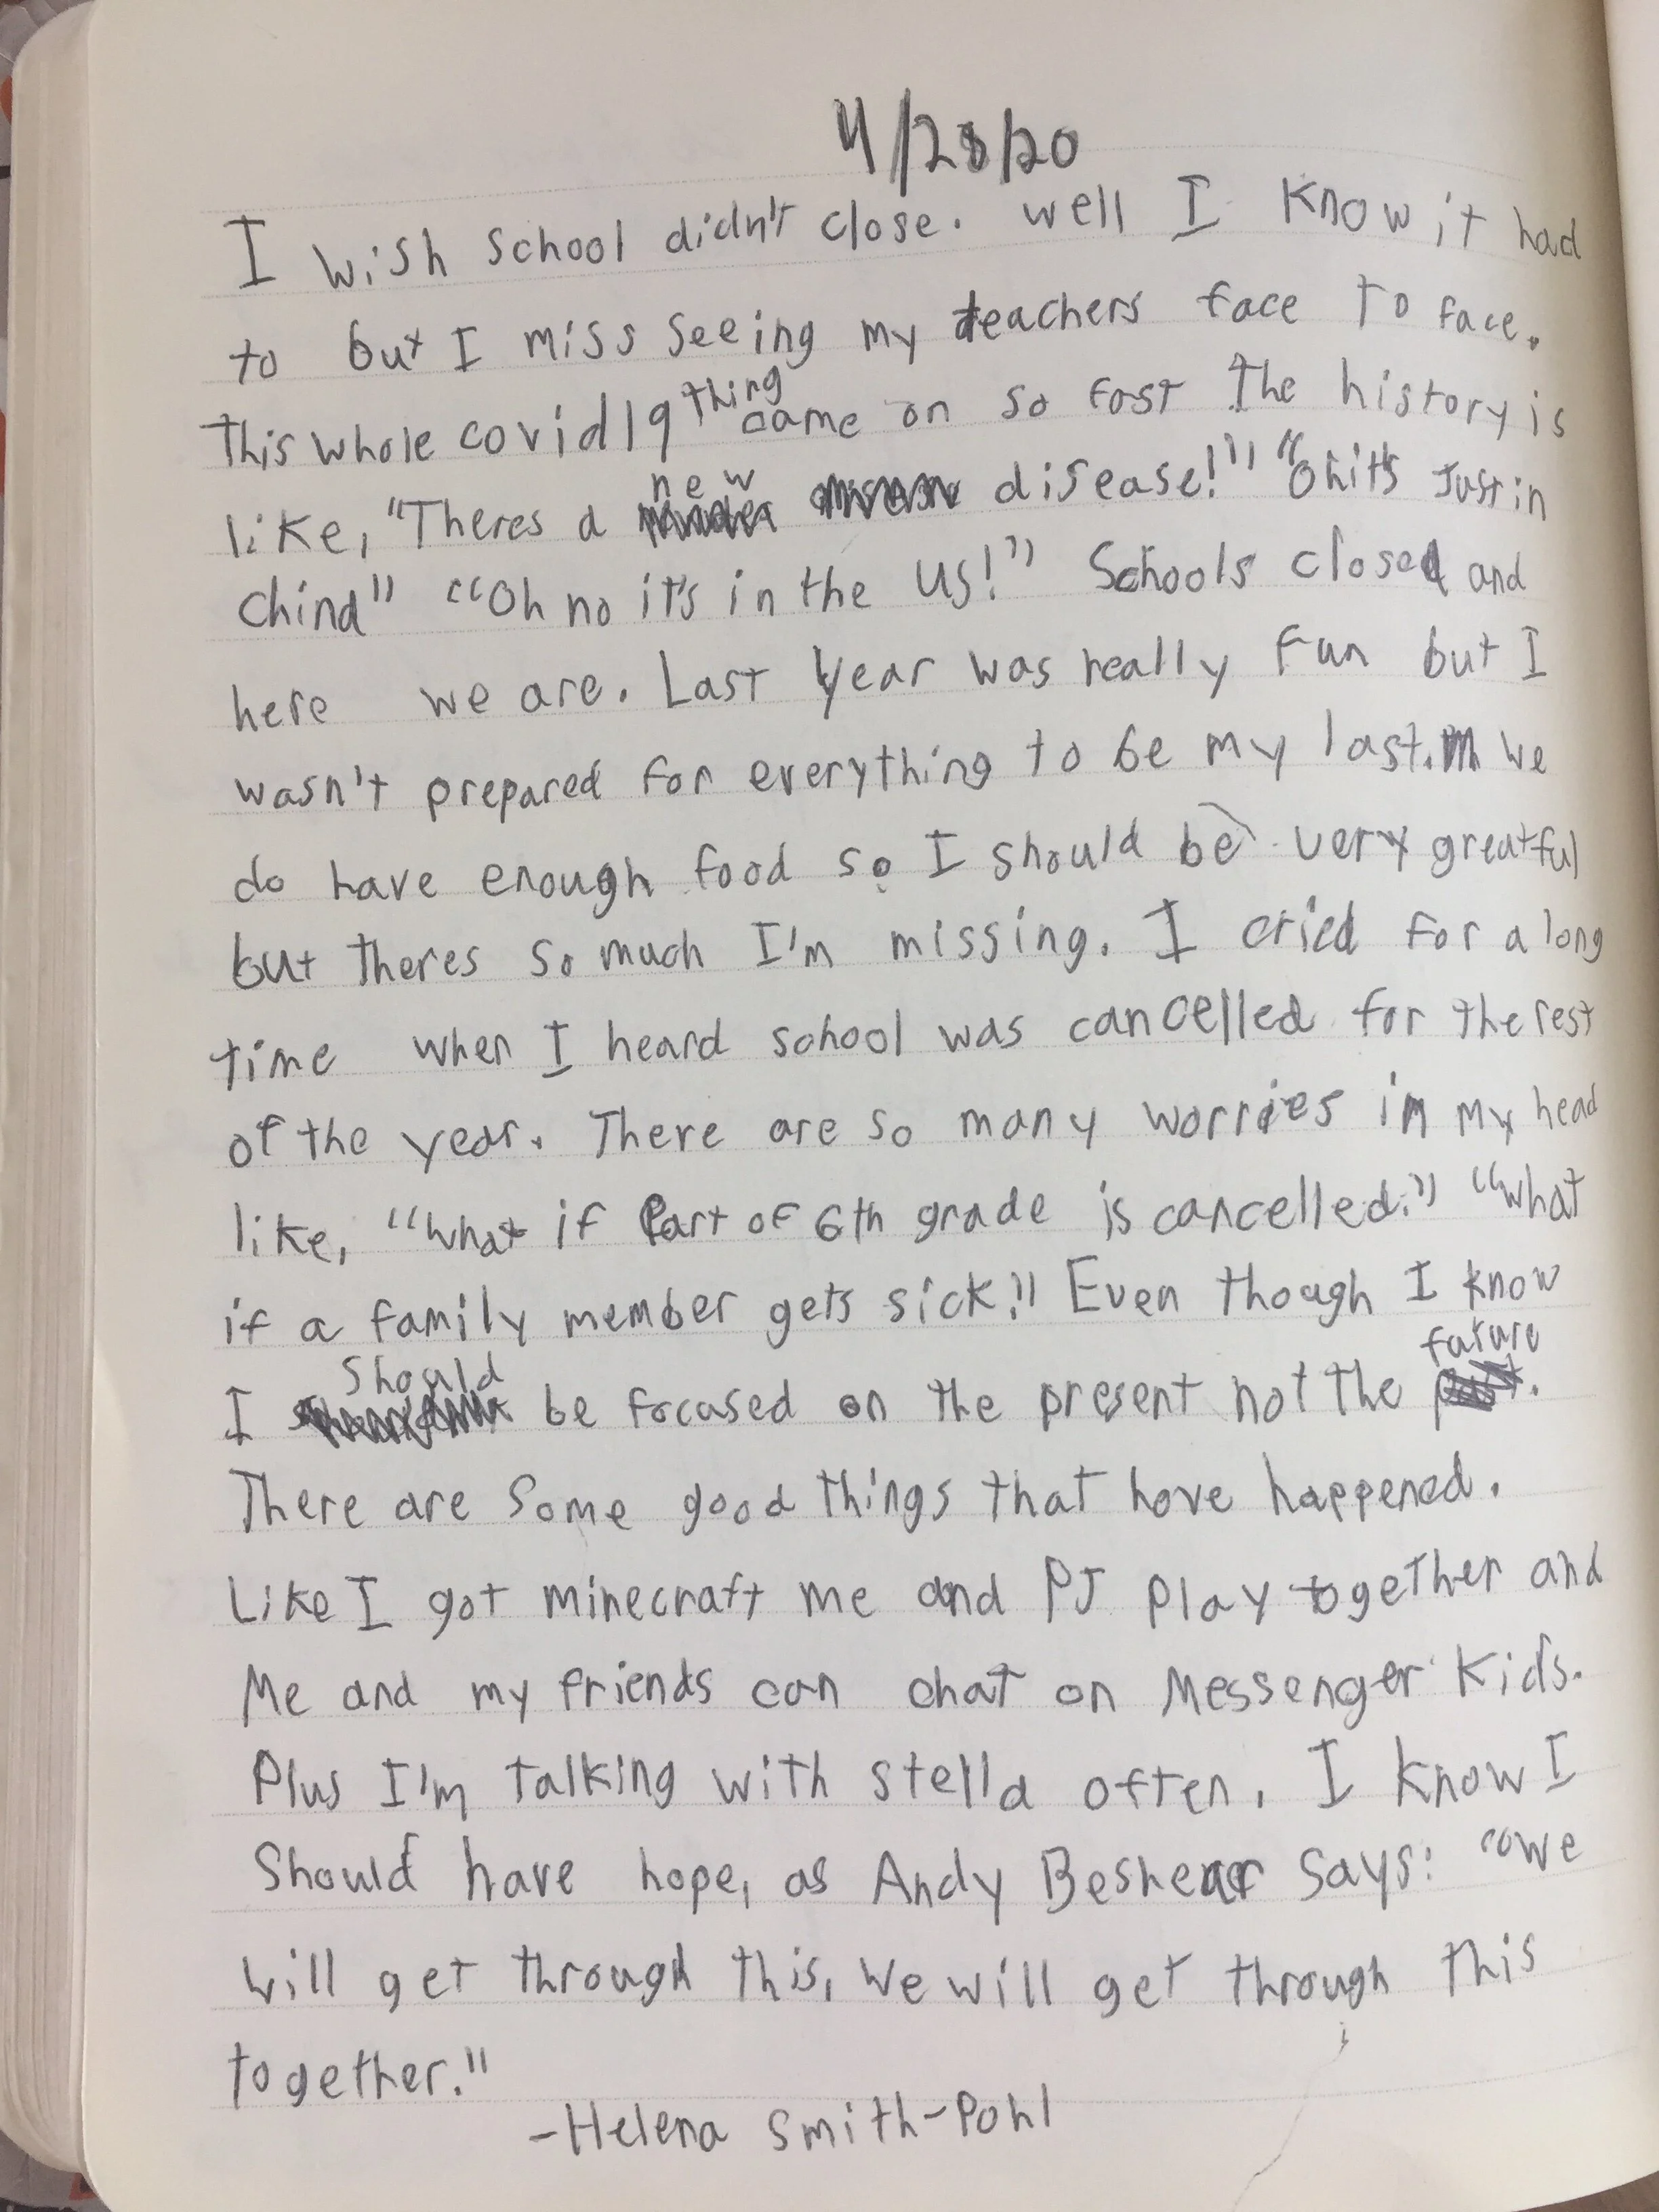 4/28/20
I wish school didn't close. well I know it had
to but I miss seeing my teachers face to face.
This whole covid19 thing came on so fast The history is
like, "Theres a new disease!" "Oh it's Just in
China" "Oh no it's in the US!" Schools closed and
here we are. Last year was really fun but I
wasn't prepared for everything to be my last. We
do have enough food so I should be very greatful
but theres so much I'm missing. I cried for a long
time when I heard school was cancelled for the rest
of the year. There are so many worries in my head
like, "What if Part of 6th grade is cancelled." "What
if a family member gets sick." Even though I know
I should be focused on the present not the future.
There are some good things that have happened.
Like I got minecraft me and PJ Play together and
Me and my friends can chat on Messenger Kids.
Plus I'm talking with stella often, I know I
Should have hope, as Andy Beshear says: "We
will get through this, We will get through this
together."
-Helena Smith-Pohl